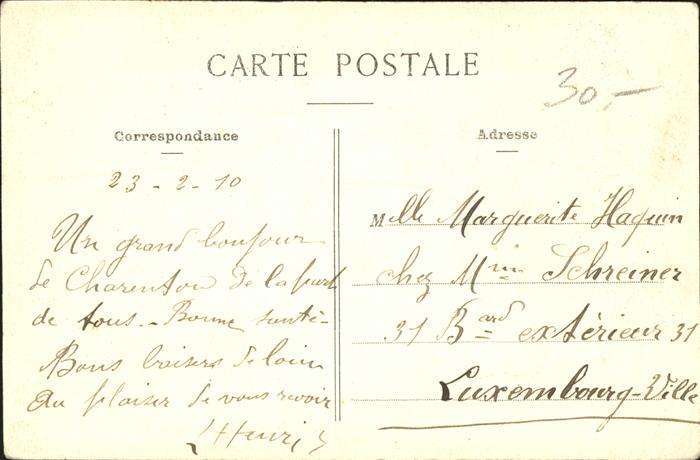 CARTE POSTALE
30,-
Correspondance
23-2-10
Un grand bonjour
de Charenton de la part
de tous. - Bonne santé -
Bons baisers de loin
Au plaisir de vous revoir
Henri
Adresse
Mlle Marguerite Haquin
chez Mme Schreiner
31 Bard extérieur 31
Luxembourg-Ville